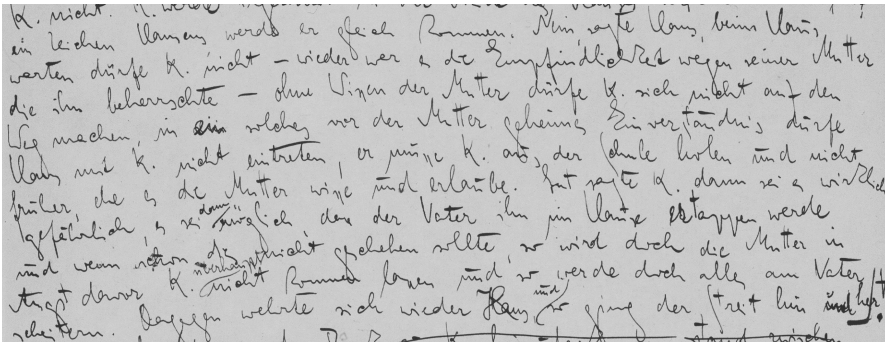 K. nicht. K. werde
ein Zeichen Hansens werde er gleich kommen. Nein sagte Hans, beim Haus
warten dürfe K. nicht – wieder war es die Empfindlichkeit wegen seiner Mutter
die ihn beherrschte – ohne Wissen der Mutter dürfe K. sich nicht auf den
Weg machen, in ein solches vor der Mutter geheimes Einverständnis dürfe
Hans mit K. nicht eintreten, er müsse K. aus der Schule holen und nicht
früher, ehe es die Mutter wisse und erlaube. Gut sagte K. dann sei es wirklich
gefährlich, es sei dann möglich dass der Vater ihn im Hause ertappen werde
und wenn schon dies nicht geschehen sollte, so wird doch die Mutter in
Angst davor K. überhaupt nicht kommen lassen und so werde doch alles am Vater
scheitern. Dagegen wehrte sich wieder Hans, und so ging der Streit hin und her.